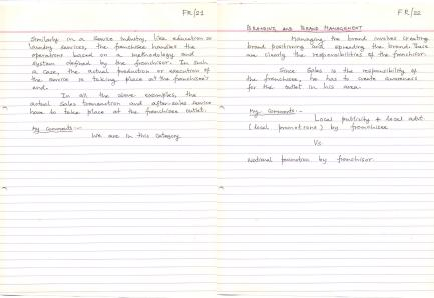 FR/21
Similarly in a Service Industry, like education or
laundry services, the franchisee handles the
operations based on a methodology and
system defined by the franchisor. In such
a case, the actual production or execution of
the service is taking place at the franchisee's
end.
In all the above examples, the
actual Sales transaction and after-sales service
have to take place at the franchisee outlet.
My Comments:-
We are in this Category.
FR/22
BRANDING AND BRAND MANAGEMENT
Managing the brand involves creating
brand positioning and spreading the brand. These
are clearly the responsibilities of the franchisor.
Since Sales is the responsibility of
the franchisee, he has to create awareness
for the outlet in his area.
My Comments:-
Local publicity + local advt.
(local promotions) by franchisee
Vs
National promotion by franchisor.